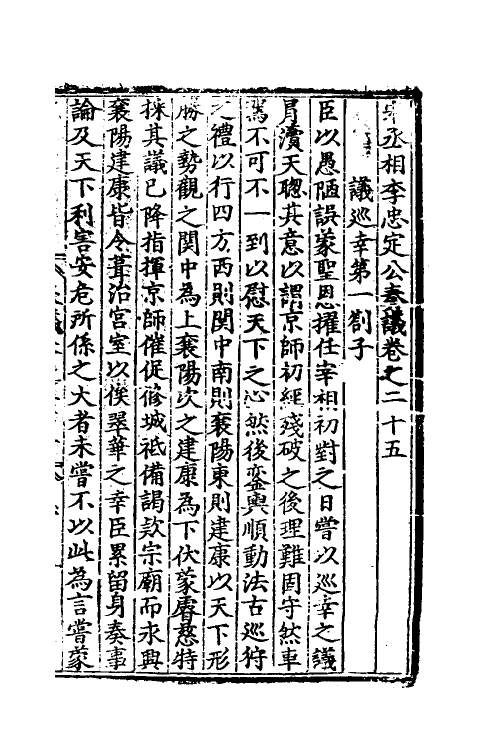 丞相李忠定公奏議卷之二十五
議巡幸第一劄子
臣以愚陋誤蒙聖恩擢任宰相初對之日嘗以巡幸之議
冒瀆天聰其意以謂京師初經殘破之後理難固守然車
駕不可不一到以慰天下之心然後鑾輿順動法古巡狩
之禮以行四方西則関中南則襄陽東則建康以天下形
勝之勢觀之関中為上襄陽次之建康為下伏蒙睿慈特
採其議已降指揮京師催促修城祗備謁款宗廟而永興
襄陽建康皆令葺治宮室以俟翠華之幸臣累留身奏事
論及天下利害安危所係之大者未嘗不以此為言嘗蒙